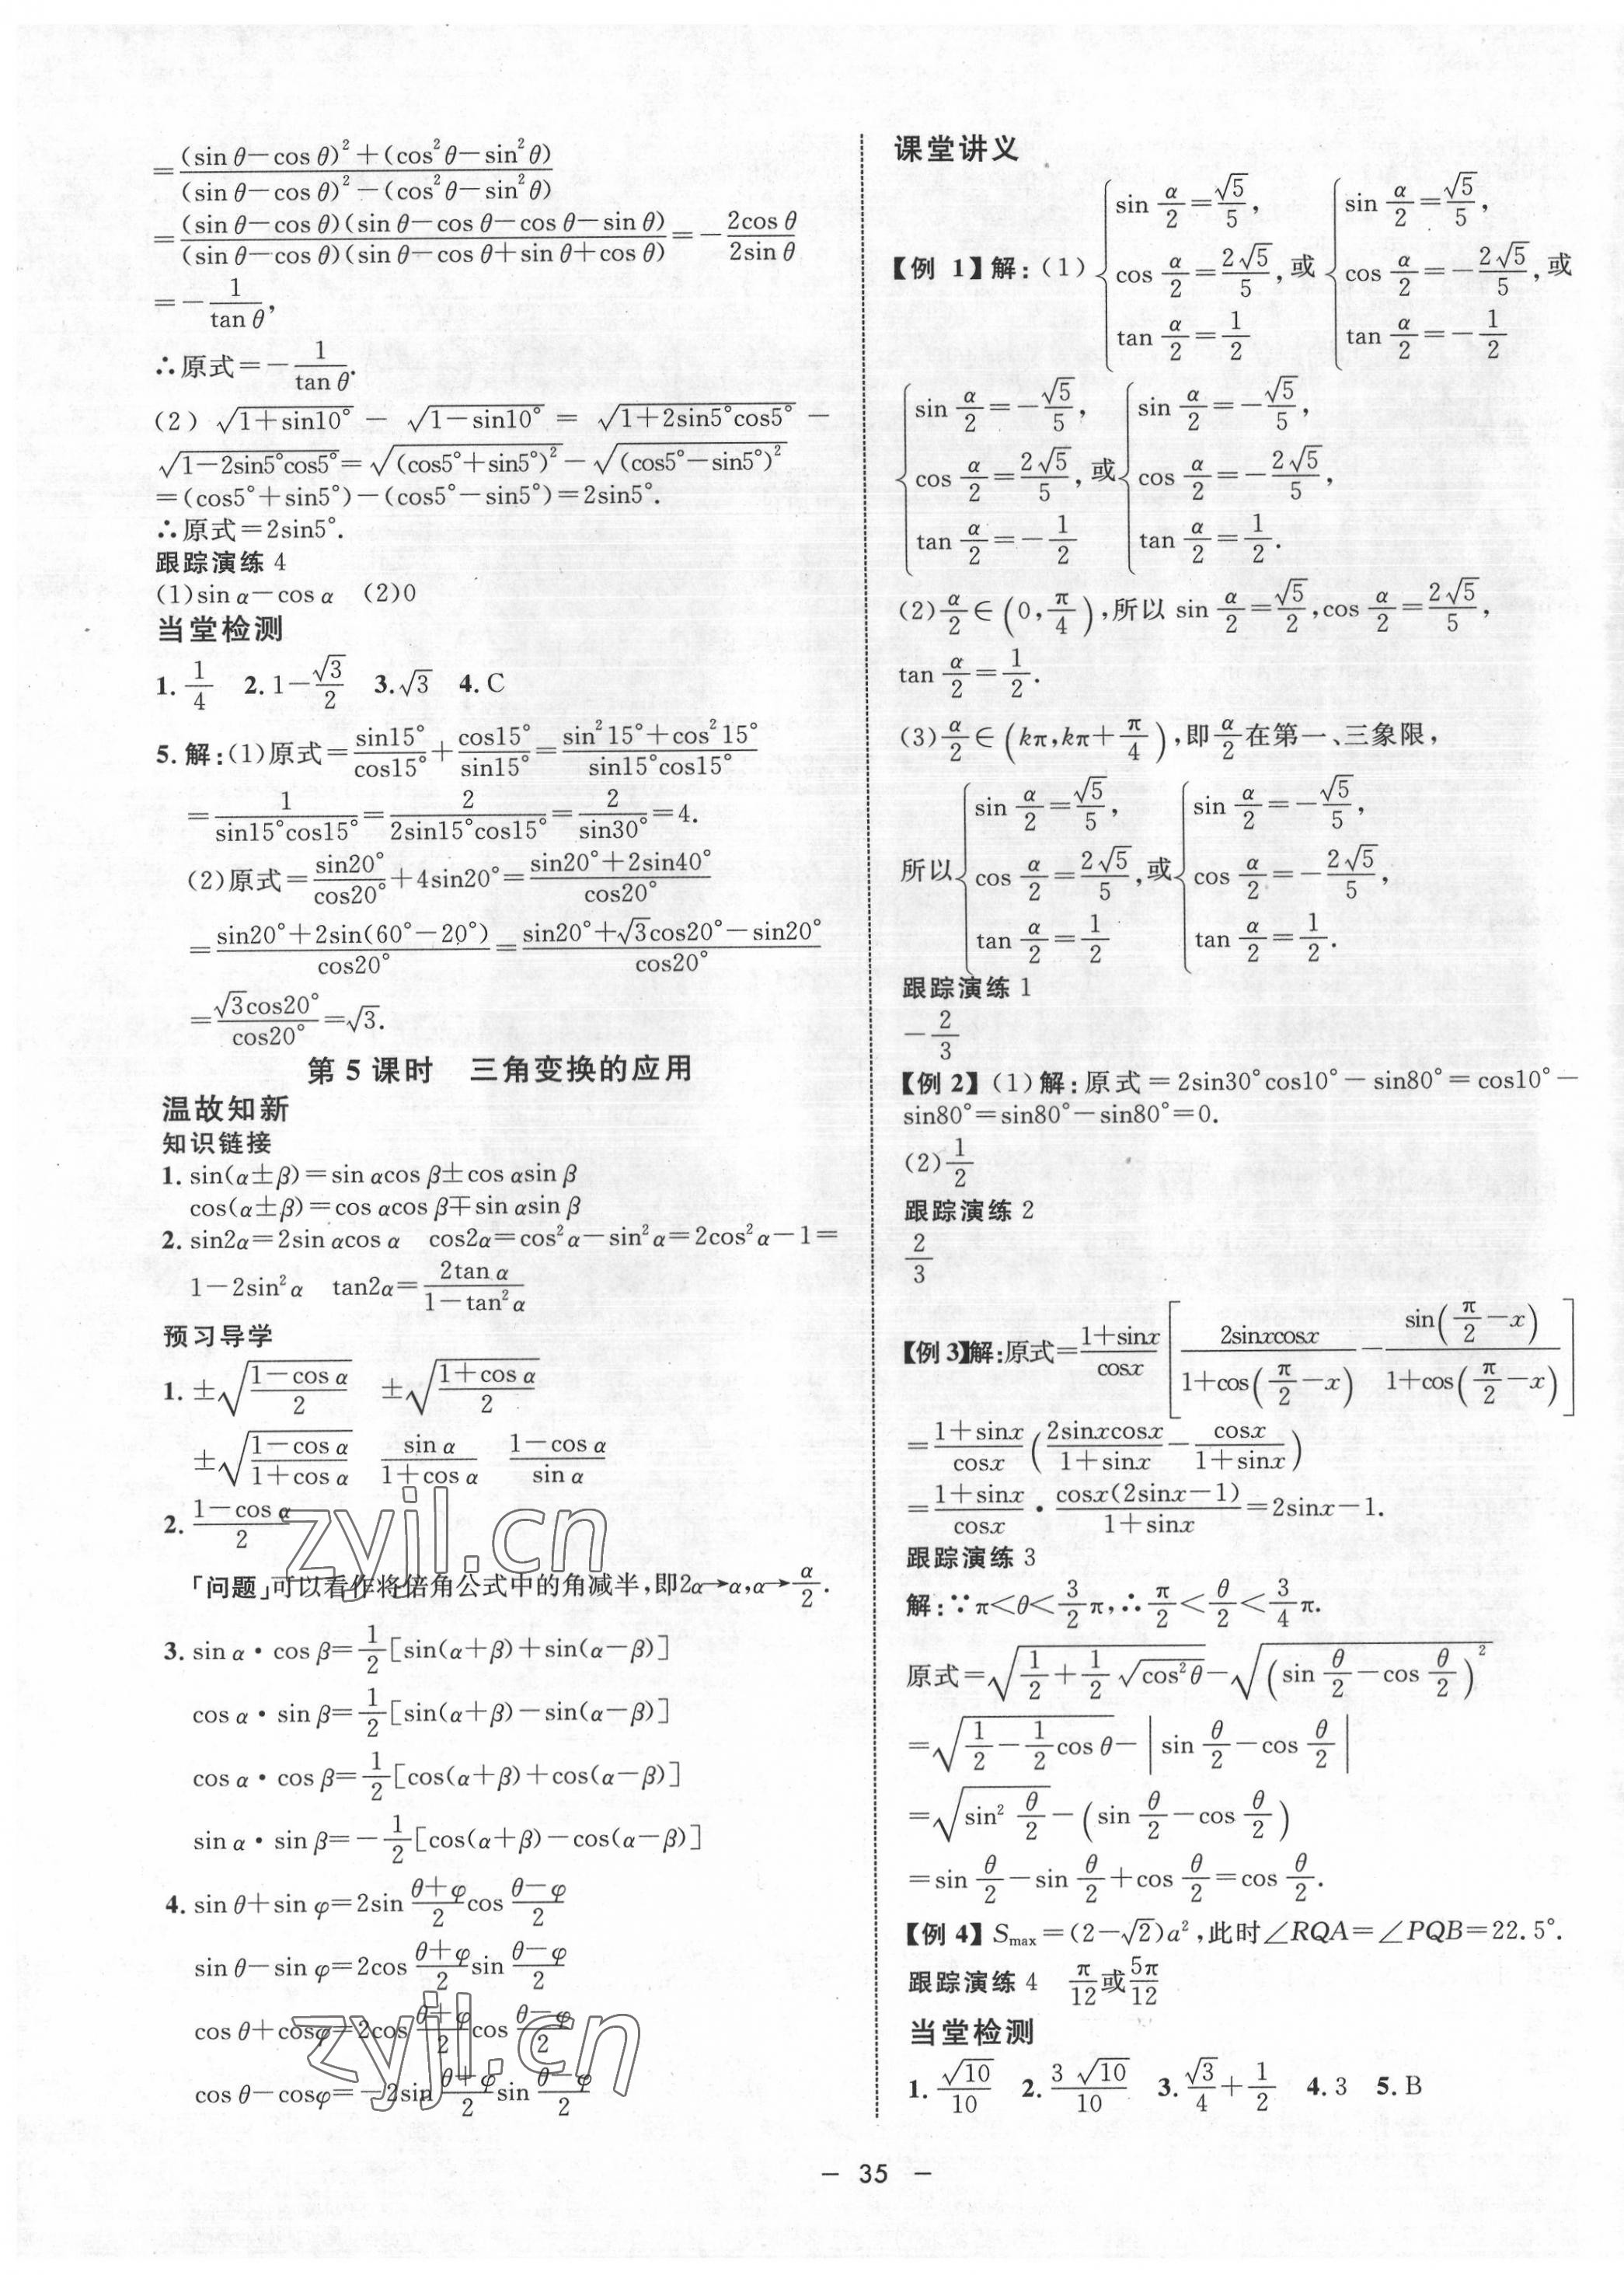 =\frac{(sin θ−cos θ)²+(cos²θ−sin²θ)}{(sin θ−cos θ)²−(cos²θ−sin²θ)}
=\frac{(sin θ−cos θ)(sin θ−cos θ−cos θ−sin θ)}{(sin θ−cos θ)(sin θ−cos θ+sin θ+cos θ)}=−\frac{2cos θ}{2sin θ}
=−\frac{1}{tan θ},
∴原式=−\frac{1}{tan θ}.
(2) √(1+sin10°) − √(1−sin10°) = √(1+2sin5°cos5°) −
√(1−2sin5°cos5°)=√((cos5°+sin5°)²)−√((cos5°−sin5°)²)
=(cos5°+sin5°)−(cos5°−sin5°)=2sin5°.
∴原式=2sin5°.
跟踪演练 4
(1)sin α−cos α (2)0
当堂检测
1.\frac{1}{4} 2.1−\frac{√3}{2} 3.√3 4.C
5.解:(1)原式=\frac{sin15°}{cos15°}+\frac{cos15°}{sin15°}=\frac{sin²15°+cos²15°}{sin15°cos15°}
=\frac{1}{sin15°cos15°}=\frac{2}{2sin15°cos15°}=\frac{2}{sin30°}=4.
(2)原式=\frac{sin20°}{cos20°}+4sin20°=\frac{sin20°+2sin40°}{cos20°}
=\frac{sin20°+2sin(60°−20°)}{cos20°}=\frac{sin20°+√3cos20°−sin20°}{cos20°}
=\frac{√3cos20°}{cos20°}=√3.
第 5 课时 三角变换的应用
温故知新
知识链接
1. sin(α±β)=sin αcos β±cos αsin β
cos(α±β)=cos αcos β∓sin αsin β
2. sin2α=2sin αcos α cos2α=cos²α−sin²α=2cos²α−1=
1−2sin²α tan2α=\frac{2tan α}{1−tan²α}
预习导学
1. ±√(\frac{1−cos α}{2}) ±√(\frac{1+cos α}{2})
±√(\frac{1−cos α}{1+cos α}) \frac{sin α}{1+cos α} \frac{1−cos α}{sin α}
2. \frac{1−cos α}{2}
「问题」可以看作将倍角公式中的角减半,即2α→α,α→\frac{α}{2}.
3. sin α·cos β=\frac{1}{2}[sin(α+β)+sin(α−β)]
cos α·sin β=\frac{1}{2}[sin(α+β)−sin(α−β)]
cos α·cos β=\frac{1}{2}[cos(α+β)+cos(α−β)]
sin α·sin β=−\frac{1}{2}[cos(α+β)−cos(α−β)]
4. sin θ+sin φ=2sin\frac{θ+φ}{2}cos\frac{θ−φ}{2}
sin θ−sin φ=2cos\frac{θ+φ}{2}sin\frac{θ−φ}{2}
cos θ+cosφ=2cos\frac{θ+φ}{2}cos\frac{θ−φ}{2}
cos θ−cosφ=−2sin\frac{θ+φ}{2}sin\frac{θ−φ}{2}
课堂讲义
【例 1】解:(1){sin\frac{α}{2}=\frac{√5}{5}, cos\frac{α}{2}=\frac{2√5}{5}, tan\frac{α}{2}=\frac{1}{2} 或{sin\frac{α}{2}=\frac{√5}{5}, cos\frac{α}{2}=−\frac{2√5}{5}, tan\frac{α}{2}=−\frac{1}{2} 或
{sin\frac{α}{2}=−\frac{√5}{5}, cos\frac{α}{2}=\frac{2√5}{5}, tan\frac{α}{2}=−\frac{1}{2} 或{sin\frac{α}{2}=−\frac{√5}{5}, cos\frac{α}{2}=−\frac{2√5}{5}, tan\frac{α}{2}=\frac{1}{2}.
(2)\frac{α}{2}∈(0,\frac{π}{4}),所以 sin\frac{α}{2}=\frac{√5}{2},cos\frac{α}{2}=\frac{2√5}{5},
tan\frac{α}{2}=\frac{1}{2}.
(3)\frac{α}{2}∈(kπ,kπ+\frac{π}{4}),即\frac{α}{2}在第一、三象限,
所以{sin\frac{α}{2}=\frac{√5}{5}, cos\frac{α}{2}=\frac{2√5}{5}, tan\frac{α}{2}=\frac{1}{2} 或{sin\frac{α}{2}=−\frac{√5}{5}, cos\frac{α}{2}=−\frac{2√5}{5}, tan\frac{α}{2}=\frac{1}{2}.
跟踪演练 1
−\frac{2}{3}
【例 2】(1)解:原式=2sin30°cos10°−sin80°=cos10°−
sin80°=sin80°−sin80°=0.
(2)\frac{1}{2}
跟踪演练 2
\frac{2}{3}
【例 3】解:原式=\frac{1+sinx}{cosx}[\frac{2sinxcosx}{1+cos(\frac{π}{2}−x)}−\frac{sin(\frac{π}{2}−x)}{1+cos(\frac{π}{2}−x)}]
=\frac{1+sinx}{cosx}(\frac{2sinxcosx}{1+sinx}−\frac{cosx}{1+sinx})
=\frac{1+sinx}{cosx}·\frac{cosx(2sinx−1)}{1+sinx}=2sinx−1.
跟踪演练 3
解:∵π<θ<\frac{3}{2}π,∴\frac{π}{2}<\frac{θ}{2}<\frac{3}{4}π.
原式=√(\frac{1}{2}+\frac{1}{2}√(cos²θ))−√((sin\frac{θ}{2}−cos\frac{θ}{2})²)
=√(\frac{1}{2}−\frac{1}{2}cos θ)−|sin\frac{θ}{2}−cos\frac{θ}{2}|
=√(sin²\frac{θ}{2})−(sin\frac{θ}{2}−cos\frac{θ}{2})
=sin\frac{θ}{2}−sin\frac{θ}{2}+cos\frac{θ}{2}=cos\frac{θ}{2}.
【例 4】Smax=(2−√2)a²,此时∠RQA=∠PQB=22.5°.
跟踪演练 4 \frac{π}{12}或\frac{5π}{12}
当堂检测
1.\frac{√10}{10} 2.\frac{3√10}{10} 3.\frac{√3}{4}+\frac{1}{2} 4.3 5.B
— 35 —
zyjl.cn
zyjl.cn